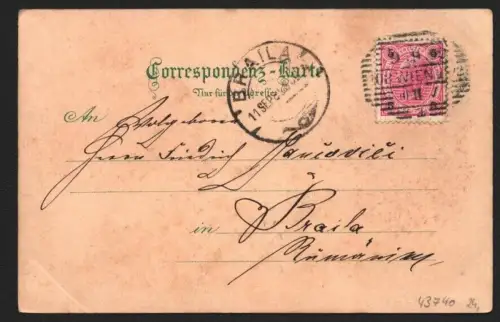 Correspondenz-Karte
Nur für die Adresse
BRAILA
11 SEP
WIEN
An Wolgeboren
Herrn Friedrich
in Braila
Rumänien
43740